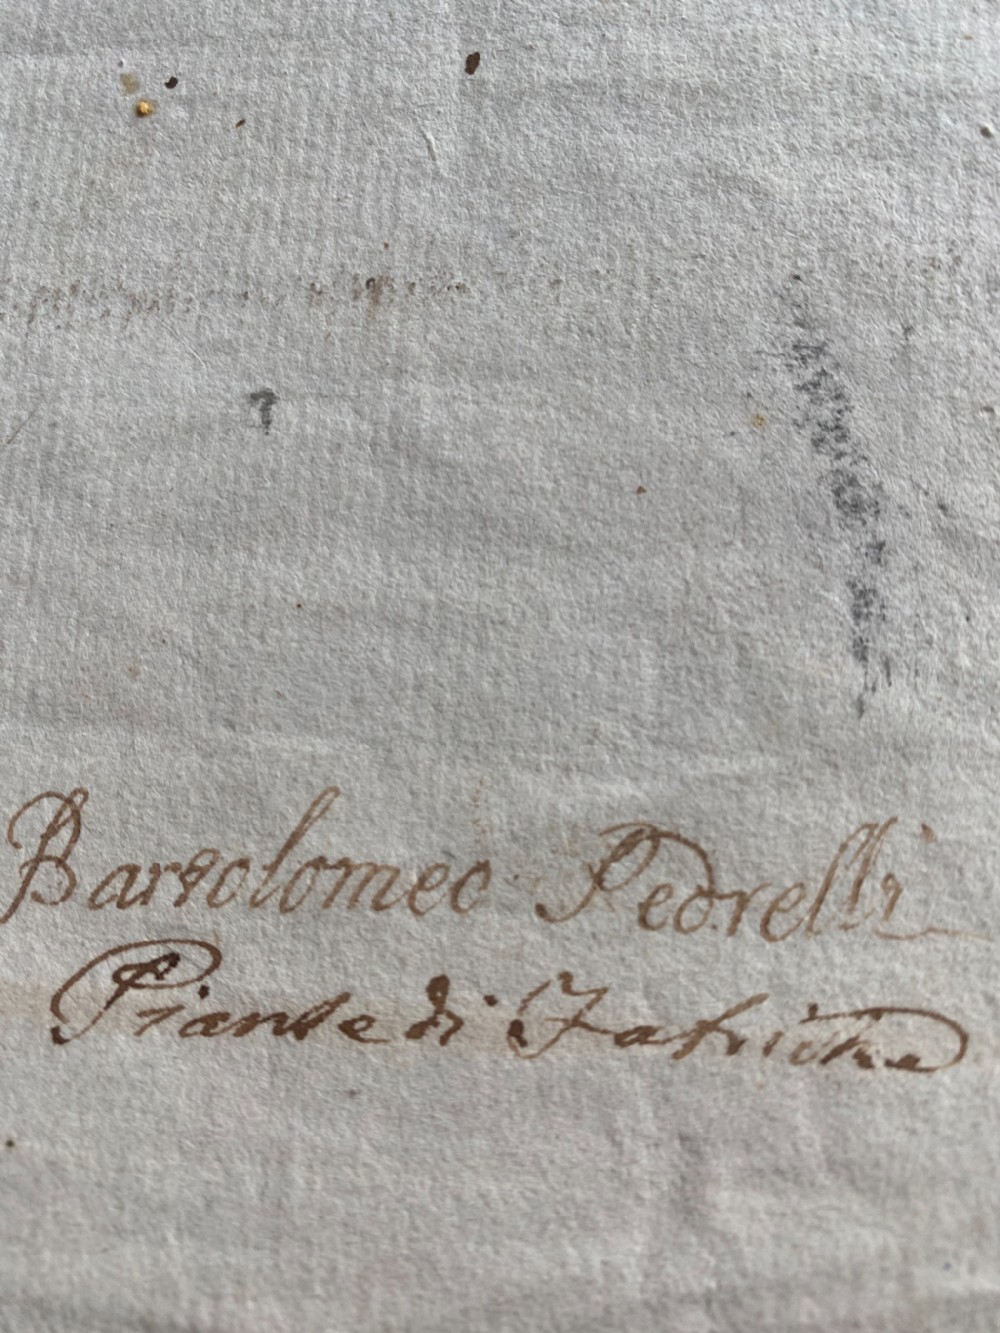 Bartolomeo Pedrelli
Piante di Fabriche